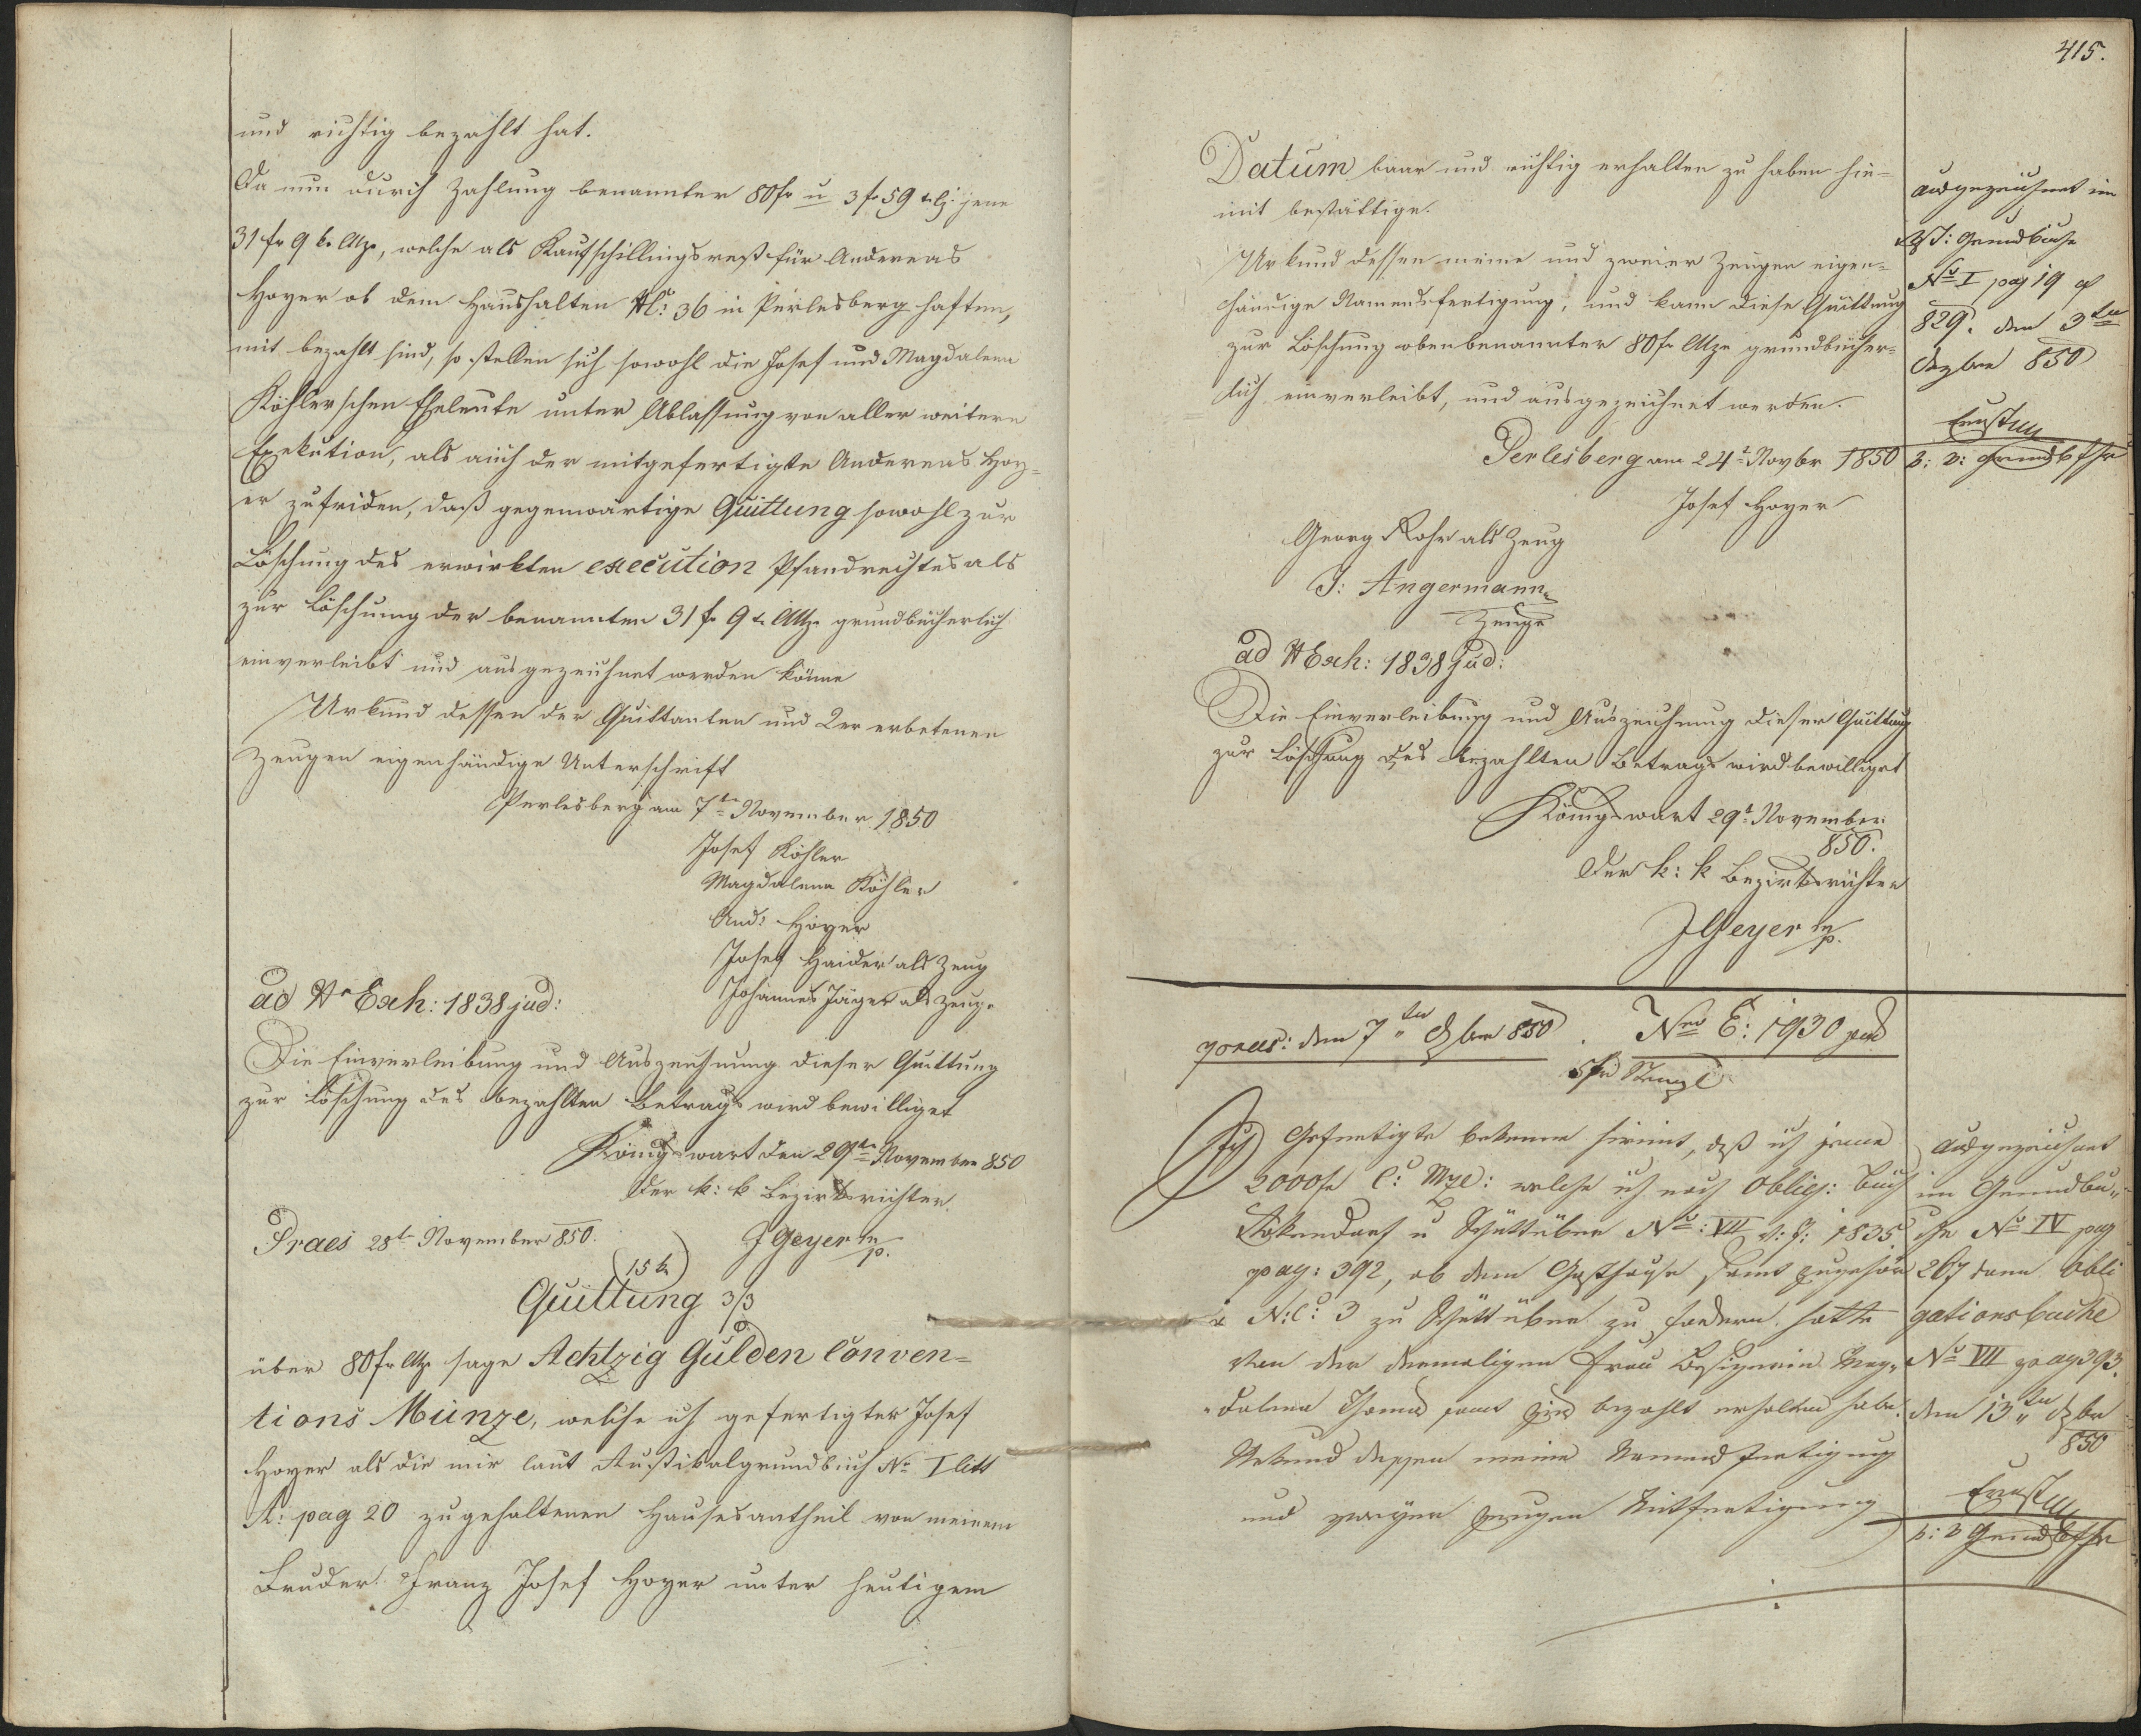 und richtig bezahlt hat.
Da nun durch Zahlung benannter 80 fr u 3 fr 59 jene
31 fr 9 kr Mze, welche als Kaufschillingsrest für Andereas
Hoyer ob dem Haushalten Nc: 36 in Perlesberg haften,
mit bezahlt sind, so stellen sich sowohl die Josef und Magdalena
Köhlerschen Eheleute unter Ablassung von aller weitern
Exekution, als auch der mitgefertigte Andereas Hoy-
er zufriden, daß gegenwärtige Quittung sowohl zur
Löschung des erwirkten execution Pfandrechtes als
zur Löschung der benannten 31 fr 9 kr Mze grundbücherlich
einverleibt und ausgezeichnet werden könne
Urkund dessen der Quittanten und 2er erbetenen
Zeugen eigenhändige Unterschrift
Perlesberg am 7ten November 1850
Josef Köhler
Magdalena Köhler
And: Hoyer
Josef Haider als Zeug
Johannes Jäger als Zeuge
ad Nr Exh: 1838 jud:
Die Einverleibung und Auszeichnung dieser Quittung
zur Löschung des bezahlten Betrags wird bewilliget
Königswart den 29ten November 850
Der k: k Bezirksrichter.
Praes 28t November 850. JGeyer mp.
(15 kr)
Quittung 3/3
über 80 fr Mze sage Achtzig Gulden Conven-
tions Münze, welche ich gefertigter Josef
Hoyer als die mir laut Rustikalgrundbuch No I litt
A: pag 20 zugehaltenen Hausesantheil von meinem
Bruder Franz Josef Hoyer unter heutigem
415.
Datum baar und richtig erhalten zu haben hie-
mit bestättige.
Urkund dessen meine und zweier Zeugen eigen-
händige Namensfertigung, und kann diese Quittung
zur Löschung obenbenannter 80 fr Mze grundbücher-
lich einverleibt, und ausgezeichnet werden.
Perlesberg am 24t Novbr 1850
Josef Hoyer
Georg Rohr als Zeug
J: Angermann
Zeuge
ad N Exh: 1838 Jud:
Die Einverleibung und Auszeichnung dieser Quittung
zur Löschung des bezahlten Betrags wird bewilliget
Königswart 29t November
850.
Der k: k Bezirksrichter
JGeyer mp.
ausgezeichnet im
Grundbuche
No I pag 19 &
829. den 3ten
Dezber 850
Ernst
Grundbfhr
praes: den 7ten Xber 850. Nro E: 1930 jud
Ich Gefertigte bekenne hiemit, daß ich jene
2000 fr C: Mze: welche ich nach Oblig: Buch
u Schüttüber No: VII v: J: 1835
pag: 392, ob dem Gasthause samt Zugehör
N:C: 3 zu Schüttüber zu fordern hatte
von der dermaligen Frau Besizerin Mag-
dalena Thoma samt Zins bezahlt erhalten habe.
Urkund dessen meine Namensfertigung
und zweyer Zeugen Mitfertigung
ausgezeichnet
im Grundbu-
che No IV pag
267 dann Obli
gationsbuche
No VII pag 393.
den 13ten Xber
850
Ernst
Grundbfhr